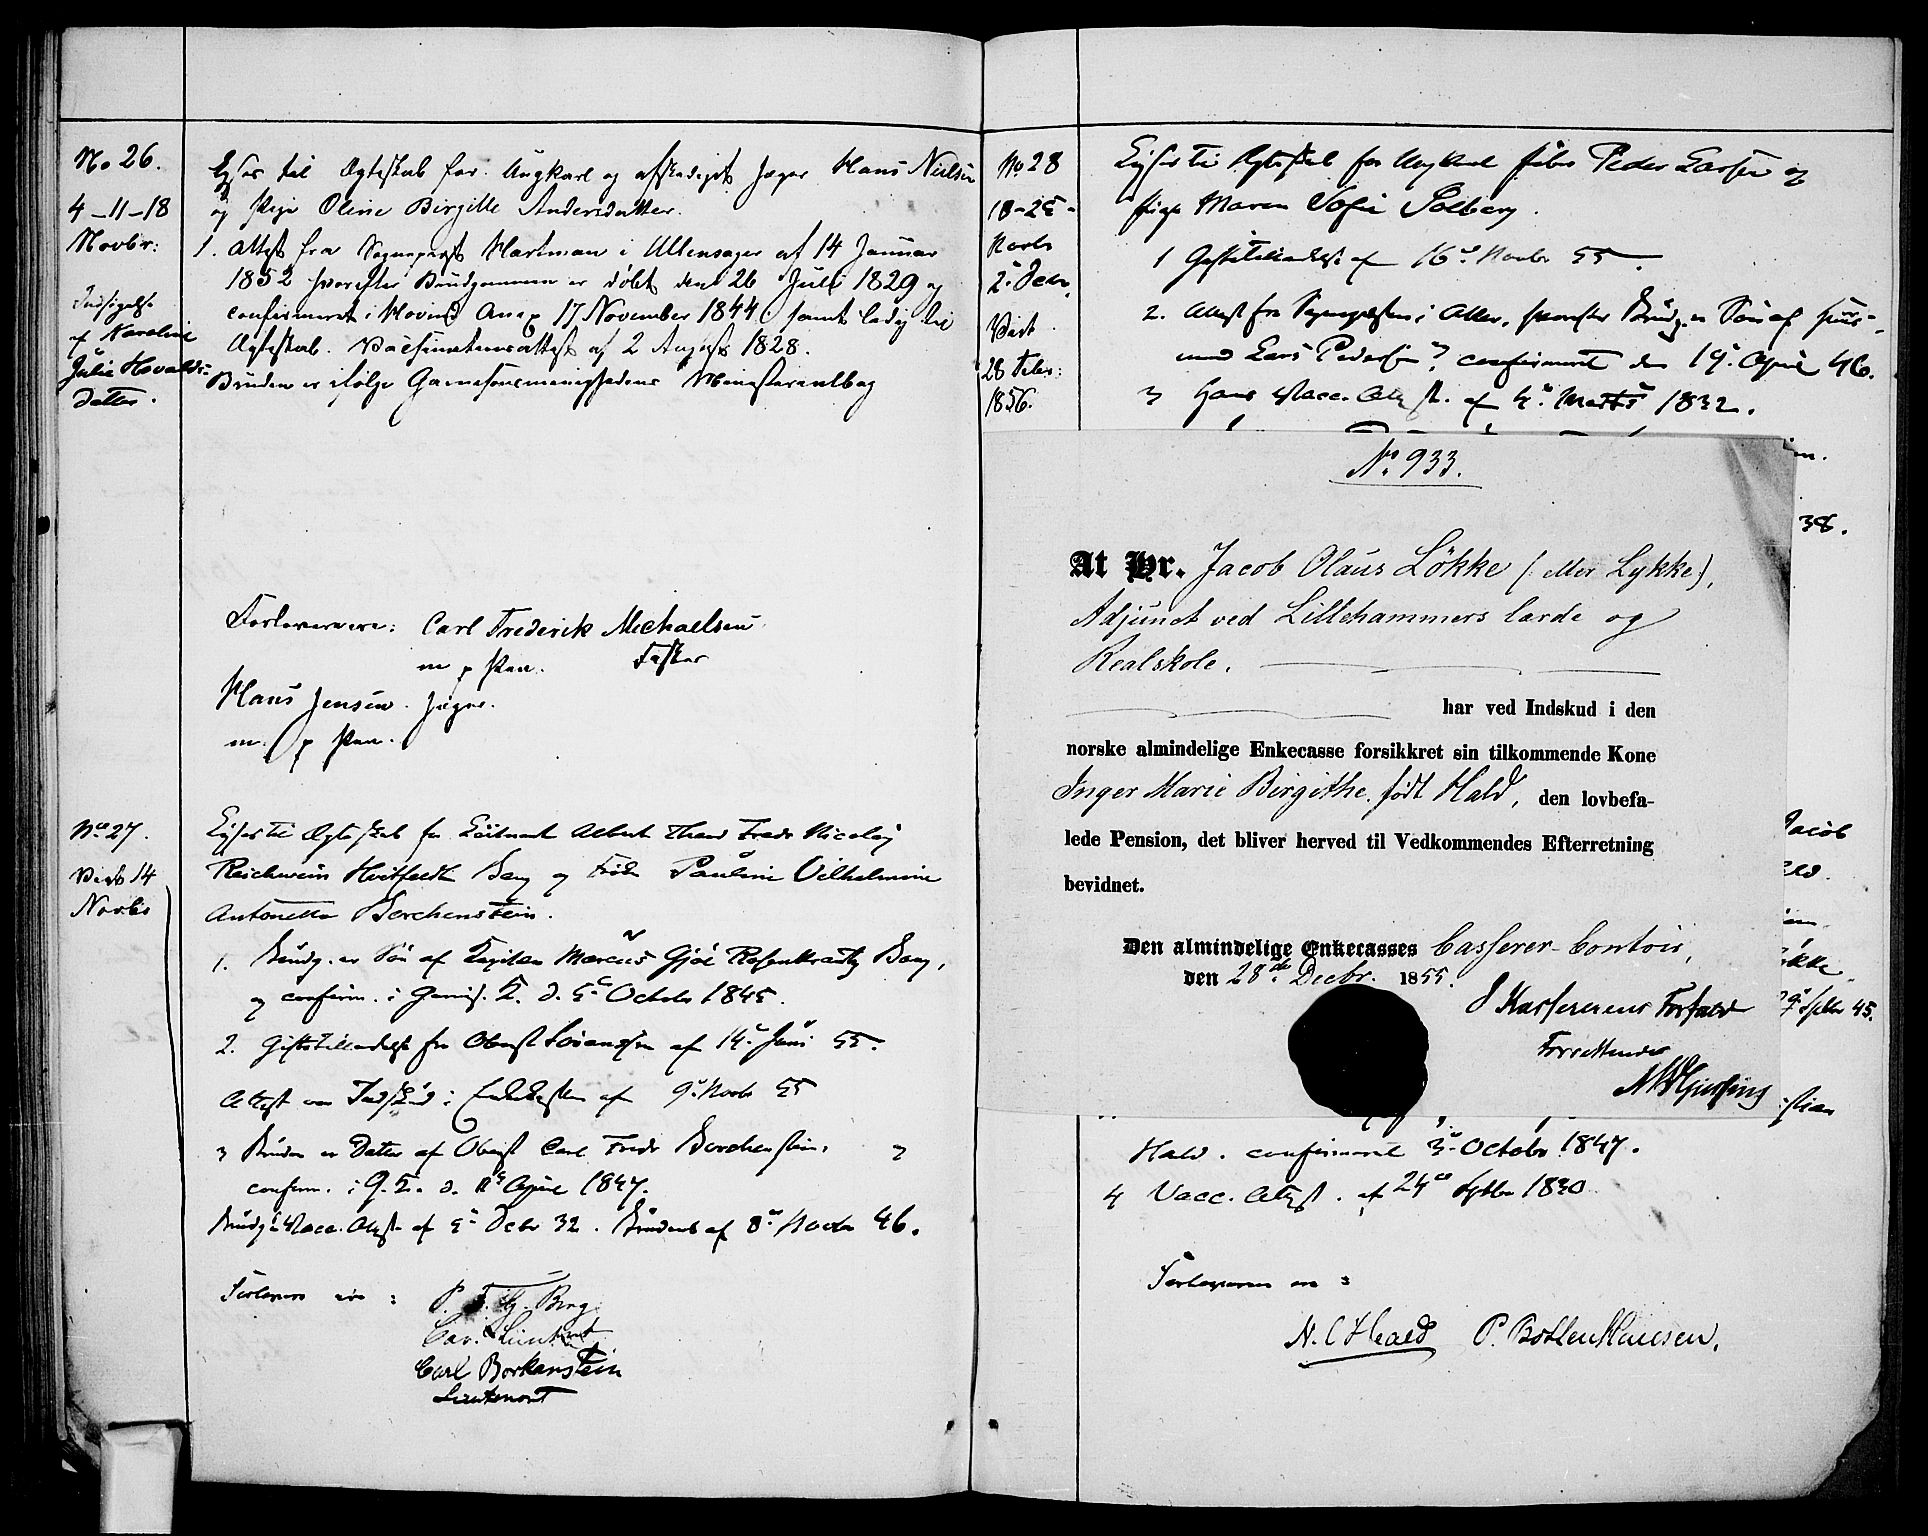 No 26.
4-11-18
Novbr:
Indsigelse
af Karoline
Julie Hovalds-
datter.
Lyses til Ægteskab for Ungkarl og afskediget Jæger Hans Nielsen
og Pige Oline Birgitte Andersdatter.
1. Attest fra Sognepræst Hartman i Ullensager af 14 Januar
1852 hvorefter Brudgommen er døbt den 26 Juli 1829 og
confirmeret i Hovind Anex 17 November 1844 samt ledig til
Ægteskab. Vaccinationsattest af 2 August 1828.
Bruden er ifølge Garnisonsmenighedens Ministerialbog
Forlovere: Carl Frederik Michaelsen
m p Pen.
Hans Jensen. Jæger.
m. p Pen.
No 27.
Viet 14
Novbr
Lyses til Ægteskab for Leitnant Albert Fredr Nicolaj
Reichwein Hvitfeldt Bang og Frøk Pauline Vilhelmine
Antonette Borchenstein.
1. Brudg. er Søn af Kapitain Marcus Gjöe Rosenkrantz Bang,
og confirm. i Garnis. K. d. 5te Octobr 1845.
2. Giftetilladelse fra Oberst af 14. Juni 55.
Attest om Indskud i Enkekassen af 9. Novbr 55
3 Bruden er Datter af Oberst Carl Fredr Borchenstein,
confirm. i G. K. d. April 1847.
Brudg. Vacc. Attest af 5 Debr 32. Brudens af 8 Novbr 46.
Forlovere ere:
Berg
Lieutnt
Carl Borkenstein
Lieutenant
No 28
18-25-
Novbr
2. Debr.
Viet
28 Febr:
1856.
Lyses til Ægteskab for Ungkarl Peder Larsen og
Pige Maren Sofie Solberg.
1 Giftetilladelse af 16 Novbr 55.
2. Attest fra Sognepræsten i Aker, hvorefter Brudg. er Søn af Huus-
mand Lars Pedersen, confirmeret den 19. April 46.
3 Hans Vacc. Attest. af 4. Marts 1832.
38.
No 933.
At Hr. Jacob Olaus Løkke (eller Lykke),
Adjunct ved Lillehammers lærde og
Realskole.
har ved Indskud i den
norske almindelige Enkecasse forsikkret sin tilkommende Kone
Inger Marie Birgithe, født Hald, den lovbefa-
lede Pension, det bliver herved til Vedkommendes Efterretning
bevidnet.
Den almindelige Enkecasses Casserer-Contoir,
den 28de Decbr. 1855.
I Kassererens Forfald
Jacob
Hald. confirmeret 3. Octobr 1847.
4 Vacc. Attest. af 24 Septbr 1830
Forlovere ere:
N. C Hald P. Botten Hansen.